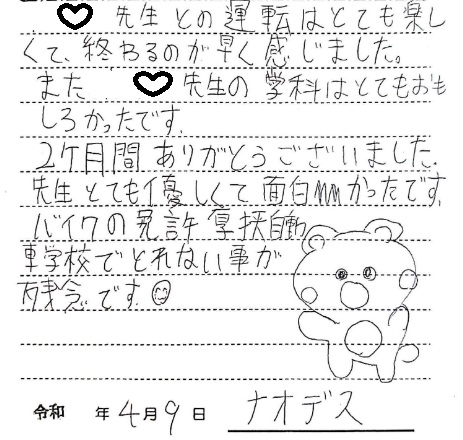 ♡先生との運転はとても楽し
くて、終わるのが早く感じました。
また♡先生の学科はとてもおも
しろかったです。
2ケ月間ありがとうございました。
先生とても優しくて面白かったです。
バイクの免許厚挟自動
車学校でとれない事が
残念です
令和 年4月9日 ナオデス